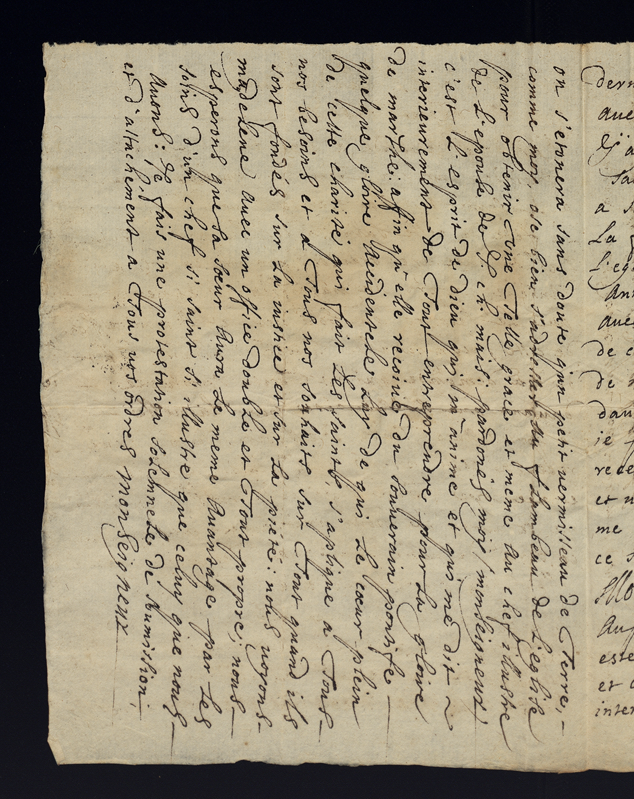 on s'etonera sans doute qun petit vermisseau de Terre,
comme moy. ose bien s'adresser au flambeau de L'eglise
pour obtenir une Telle grace et meme au chef illustre
de L'epouse de J. ch. mais pardonés moy / monseigneur /
c'est L'esprit de dieu qui m'anime et qui me dit
interieurement de Tout entreprendre pour La gloire
de marthe. affin qu'elle recoive du souverain pontife
quelque gloire Accidentele Luy de qui Le cœur plein
de cette charité qui fait Les saints s'aplique a Tous
nos besoins et a Tous nos souhaits sur Tout quand ils
sont fondés sur La justice et sur La pieté: nous voyons
madelene avec un office double et Tout propre, nous
esperons que sa sœur Aura Le meme Avantage par Les
soins d'un chef si saint si illustre que celuy que nous
Avons: Je fais une protestation solemnele de
et d'attachement a Tous vos ordres Monseigneur
dern
ave
a s
La
L'eg
ave
de c
de
dau
je
rece
et u
me
ce s
este
et
inter